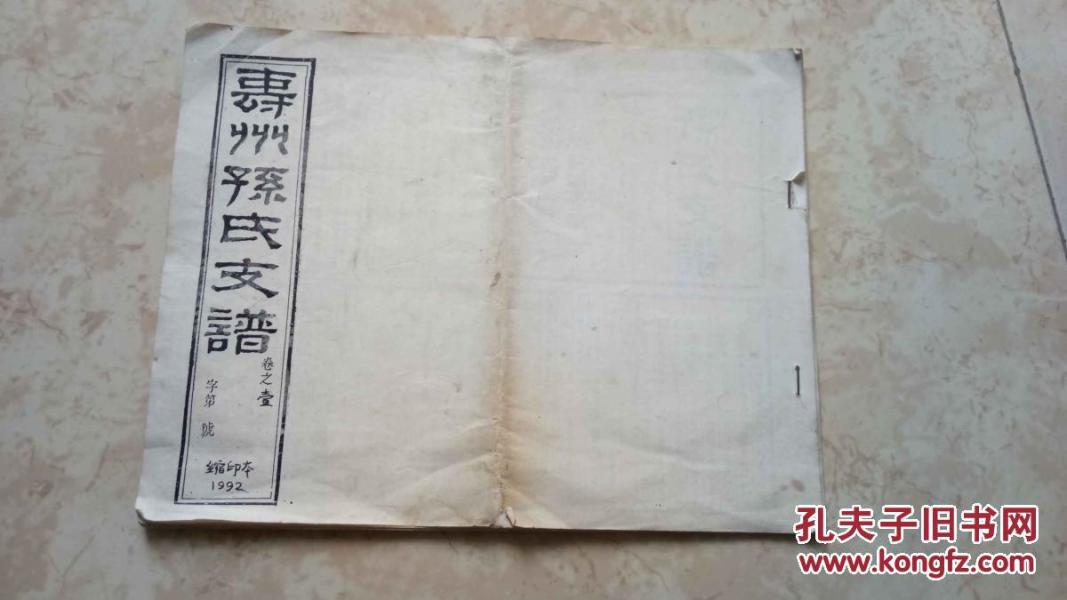 壽州孫氏支譜
卷之壹
字第 號
縮印本
1992
孔夫子旧书网
www.kongfz.com